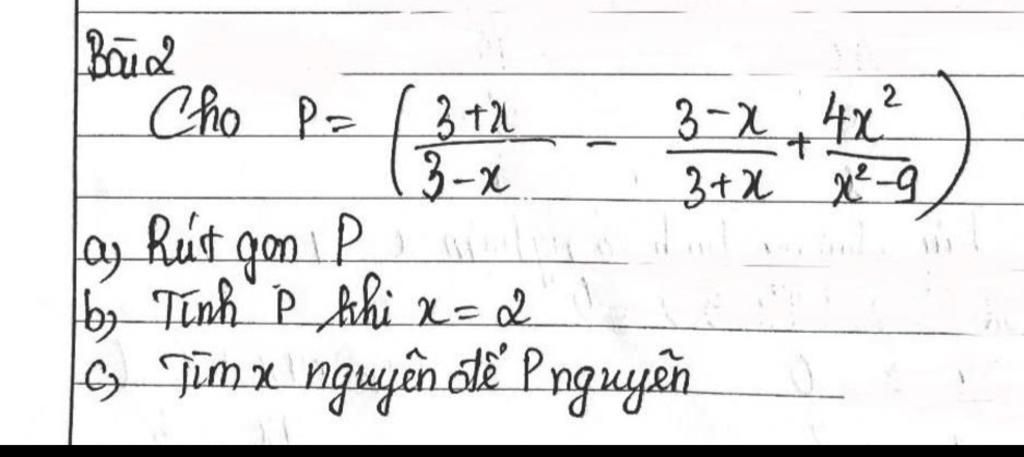 Bài 2
Cho P = ( (3+x)/(3-x) - (3-x)/(3+x) + 4x²/(x²-9) )
a) Rút gọn P
b) Tính P khi x = 2
c) Tìm x nguyên để P nguyên